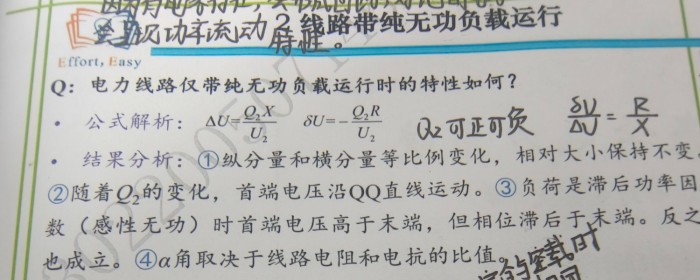 2 线路带纯无功负载运行
功率流动
特性。
Effort, Easy
Q：电力线路仅带纯无功负载运行时的特性如何？
• 公式解析：ΔU=Q₂X/U₂ δU=-Q₂R/U₂ Q₂可正可负 δU/ΔU=R/X
• 结果分析：①纵分量和横分量等比例变化，相对大小保持不变
②随着Q₂的变化，首端电压沿QQ直线运动。③负荷是滞后功率因
数（感性无功）时首端电压高于末端，但相位滞后于末端。反之
也成立。④α角取决于线路电阻和电抗的比值。